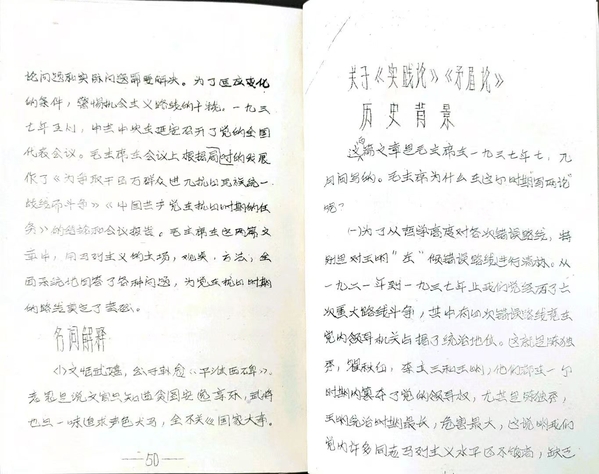 论问题和实际问题都要解决。为了适应变化
的条件，警惕机会主义路线的干扰，一九三
七年五月，中共中央在延安召开了党的全国
代表会议。毛主席在会议上根据局时的发展
作了《为争取千百万群众进入抗日民族统一
战线而斗争》《中国共产党在抗日时期的任
务》的结论和会议报告。毛主席在这两篇文
章中，用马列主义的立场，观点，方法，全
面系统地回答了各种问题，为党在抗日时期
的路线奠定了基础。
名词解释
⑴文恬武嬉，公于韩愈《平淮西碑》。
意思是说文官只知道贪图安逸享乐，武将
也只一味追求声色犬马，全不关心国家大事。
50
关于《实践论》《矛盾论》
历史背景
这篇文章是毛主席在一九三七年七、八
月间写的。毛主席为什么在这个时期写两论
呢？
㈠为了从哲学高度对各次错误路线，特
别是对王明“左”倾错误路线进行清标。从
一九二一年到一九三七年止我们党经历了六
次重大路线斗争，其中有四次错误路线在
党内领导机关占据了统治地位。这就是陈独
秀，瞿秋白，李立三和王明，他们都在一个
时期内篡夺了党的领导权，尤其是陈独秀，
王明统治时期最长，危害最大，这说明我们
党内许多同志马列主义水平还不够高，缺乏